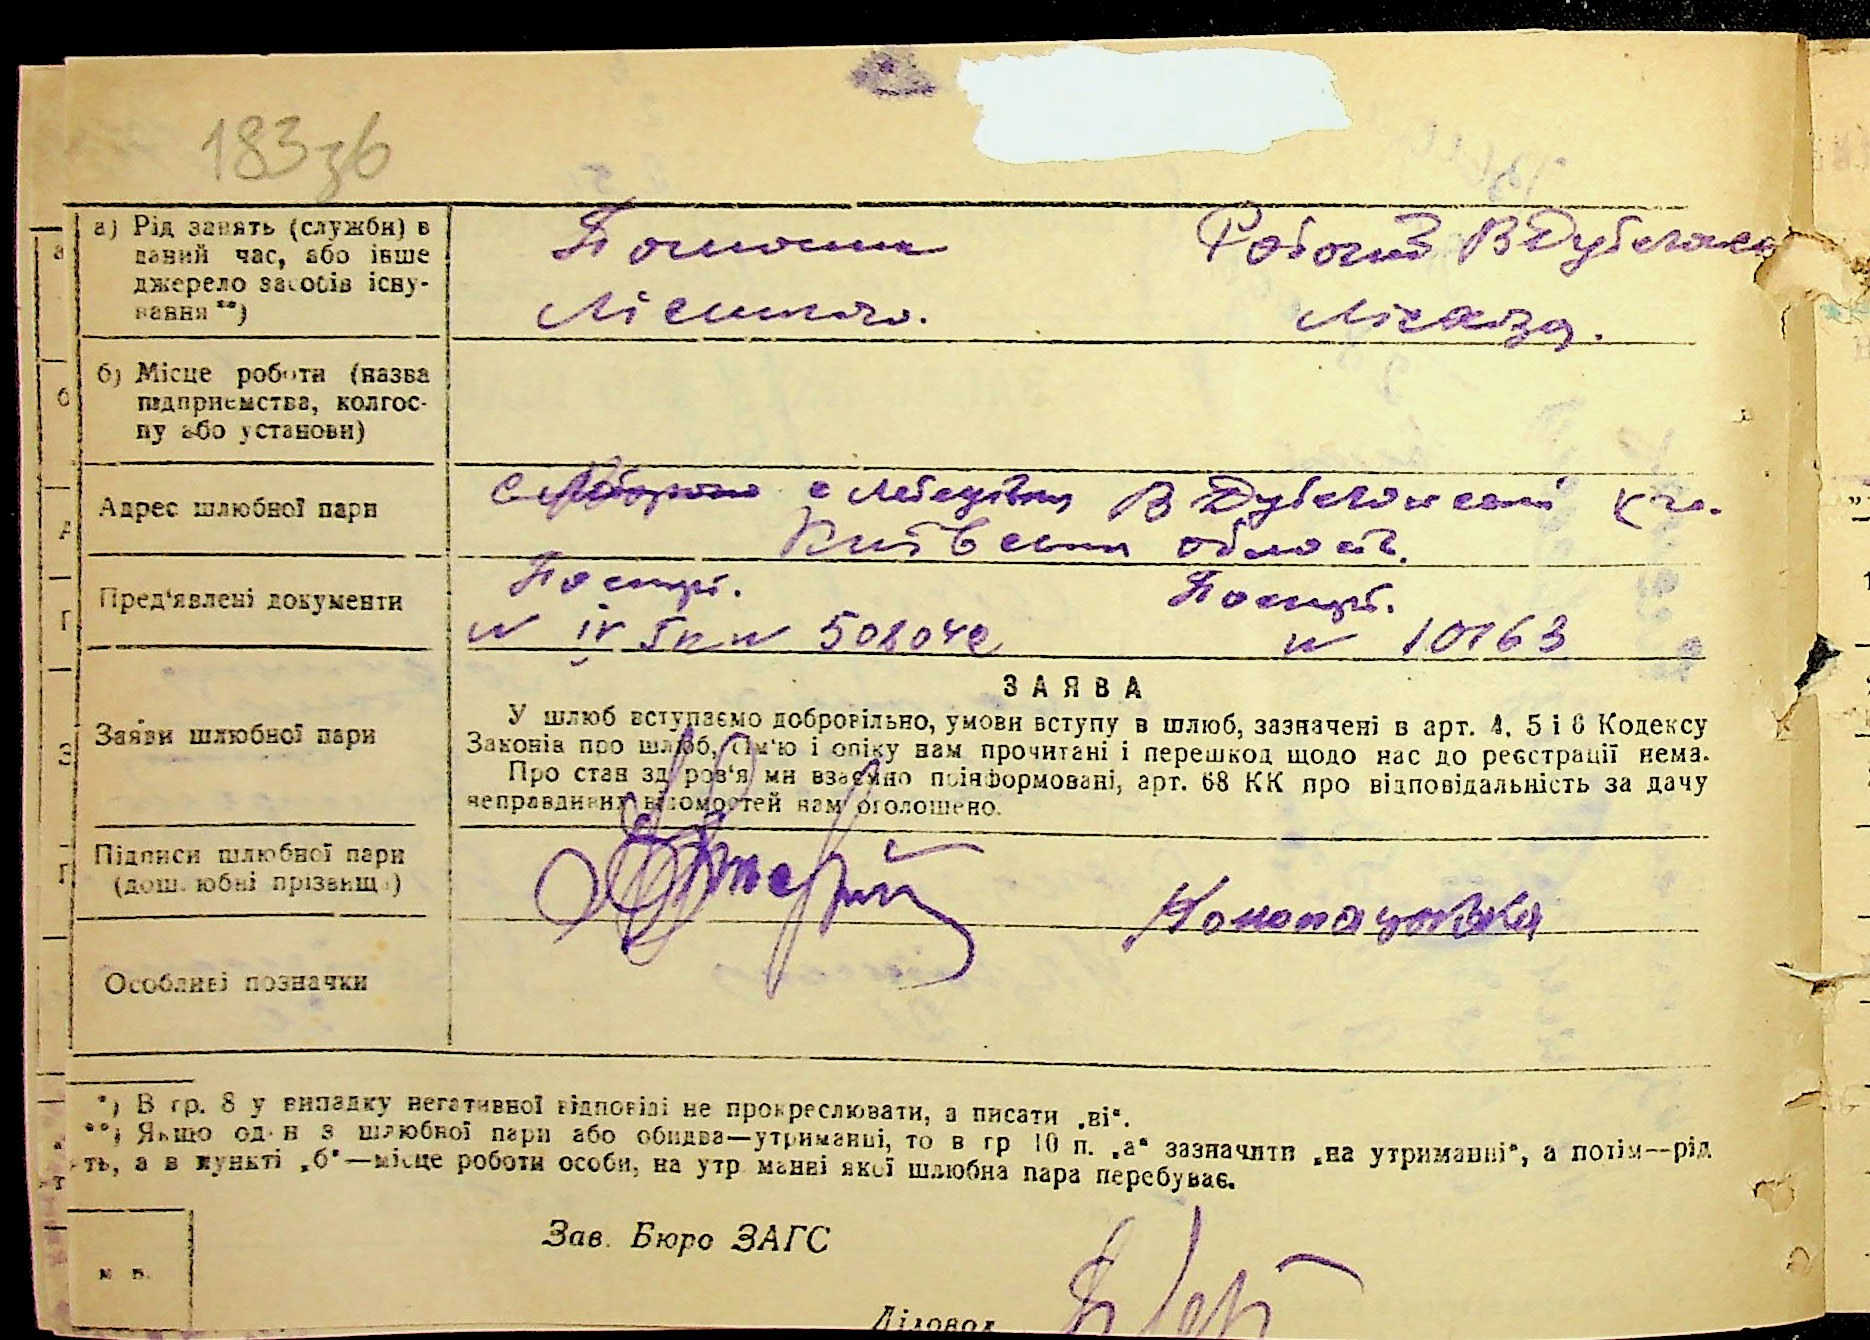 183зв
а) Рід занять (служби) в
даний час, або інше
джерело засобів існу-
вання **)
Помошн
Лісничого.
Робочий ВДубечанск
Лісгоза.
б) Місце роботи (назва
підприємства, колгос-
пу або установи)
Адрес шлюбної пари
с Лебедівка ВДубечанский
Київська область.
Пред'явлені документи
Паспорт.
Паспорт.
№ 10163
Заяви шлюбної пари
ЗАЯВА
У шлюб вступаємо добровільно, умови вступу в шлюб, зазначені в арт. 4, 5 і 6 Кодексу
Законів про шлюб, сім'ю і опіку нам прочитані і перешкод щодо нас до реєстрації нема.
Про стан здоров'я ми взаємно поінформовані, арт. 68 КК про відповідальність за дачу
неправдивих відомостей нам оголошено.
Підписи шлюбної пари
(дошлюбні прізвища)
Особливі позначки
*) В гр. 8 у випадку негативної відповіді не прокреслювати, а писати „ні“.
**) Якщо один з шлюбної пари або обидва—утриманці, то в гр 10 п. „а“ зазначити „на утриманні“, а потім—рід
ть, а в пункті „б“—місце роботи особи, на утриманні якої шлюбна пара перебуває.
Зав. Бюро ЗАГС
м. п.
Діловод